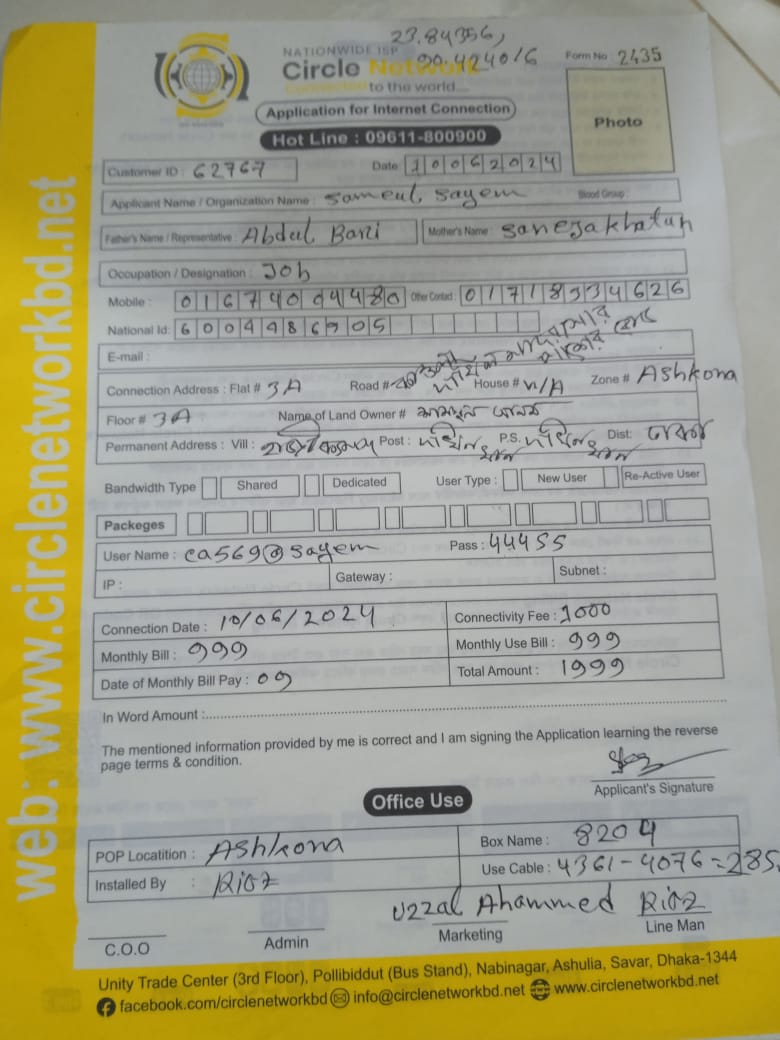 23.84356,
90.424016
NATIONWIDE ISP
Circle Network
Connected to the world...
Form No : 2435
Application for Internet Connection
Hot Line : 09611-800900
Photo
Customer ID : 62767
Date 10062024
Applicant Name / Organization Name : Sameul Sayem Blood Group :
Father's Name / Representative : Abdul Bari Mother's Name : Sanejakhatun
Occupation / Designation : Job
Mobile : 01674004480 Other Contact : 01718334626
National Id: 6004486905
E-mail :
Connection Address : Flat # 3A Road # House # N/A Zone # Ashkona
Floor # 3A Name of Land Owner #
Permanent Address : Vill : Post : P.S. Dist: ঢাকা
Bandwidth Type Shared Dedicated User Type : New User Re-Active User
Packeges
User Name : ca569@sayem Pass : 44455
IP : Gateway : Subnet :
Connection Date : 10/06/2024 Connectivity Fee : 1000
Monthly Bill : 999 Monthly Use Bill : 999
Date of Monthly Bill Pay : 09 Total Amount : 1999
In Word Amount :
The mentioned information provided by me is correct and I am signing the Application learning the reverse
page terms & condition.
Applicant's Signature
Office Use
POP Locatition : Ashkona Box Name : 8204
Installed By : Riaz Use Cable : 4361-4076=285
Uzzal Ahammed Riaz
C.O.O Admin Marketing Line Man
Unity Trade Center (3rd Floor), Pollibiddut (Bus Stand), Nabinagar, Ashulia, Savar, Dhaka-1344
facebook.com/circlenetworkbd info@circlenetworkbd.net www.circlenetworkbd.net
web: www.circlenetworkbd.net